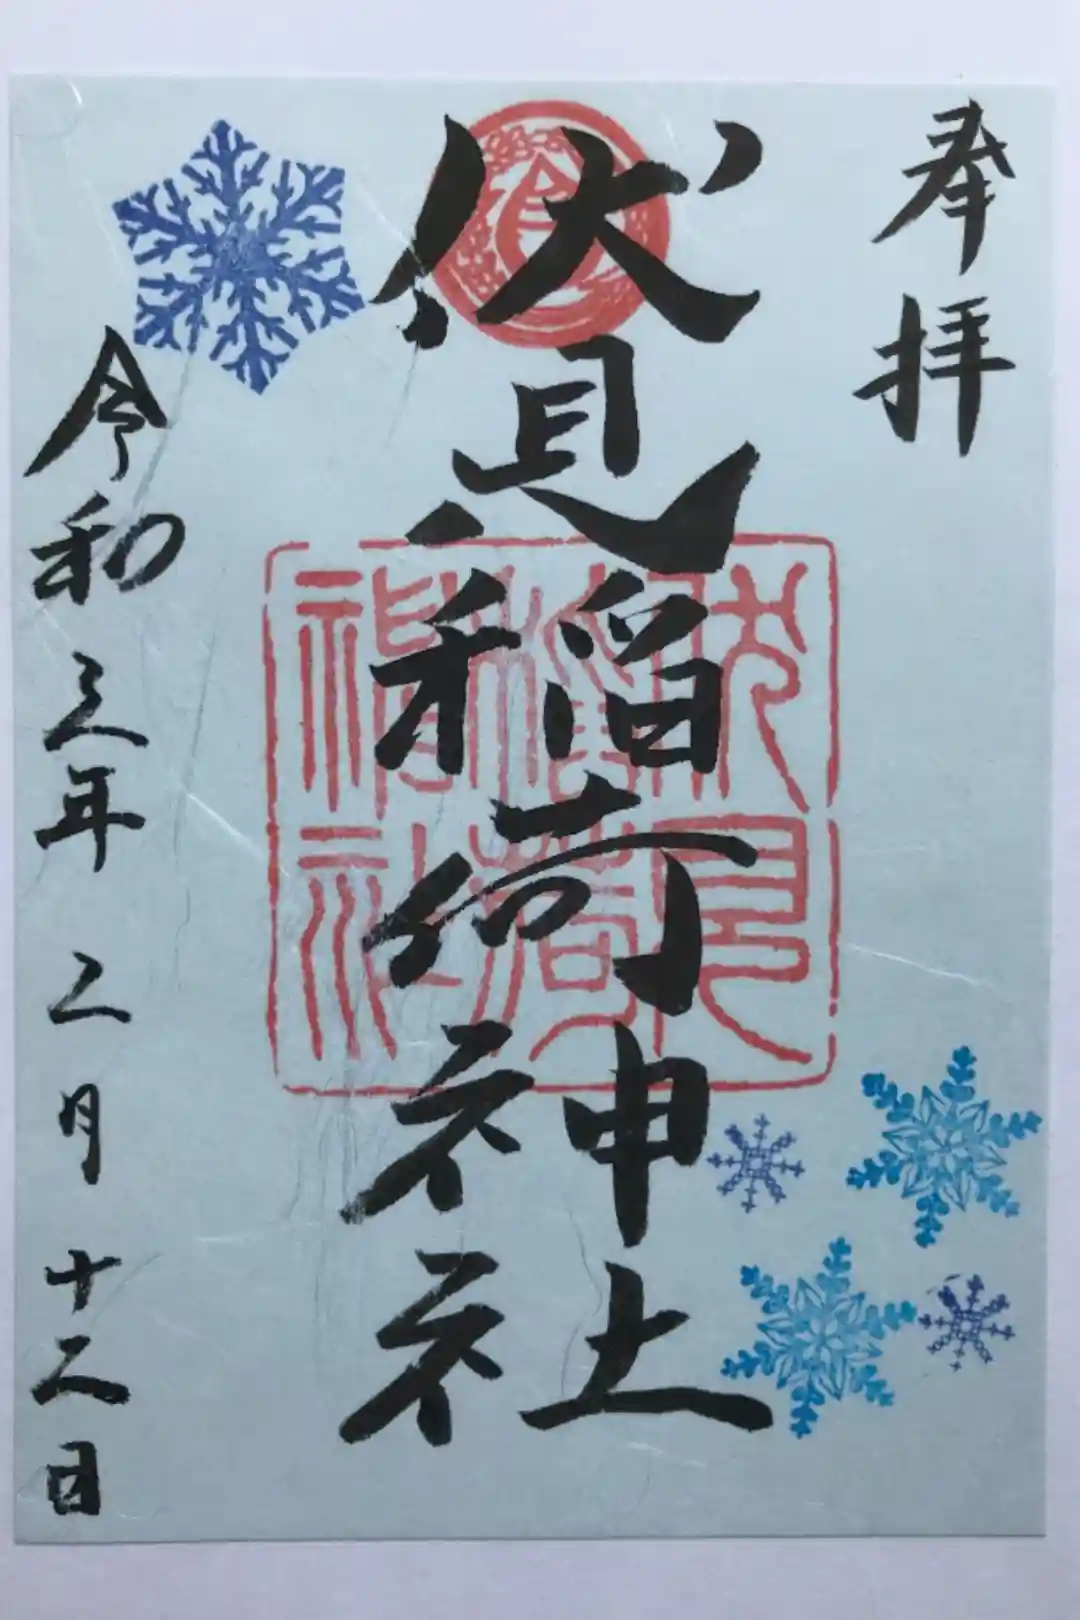 奉拝
伏見稲荷神社
伏見
稲荷
神社
令和三年二月十二日